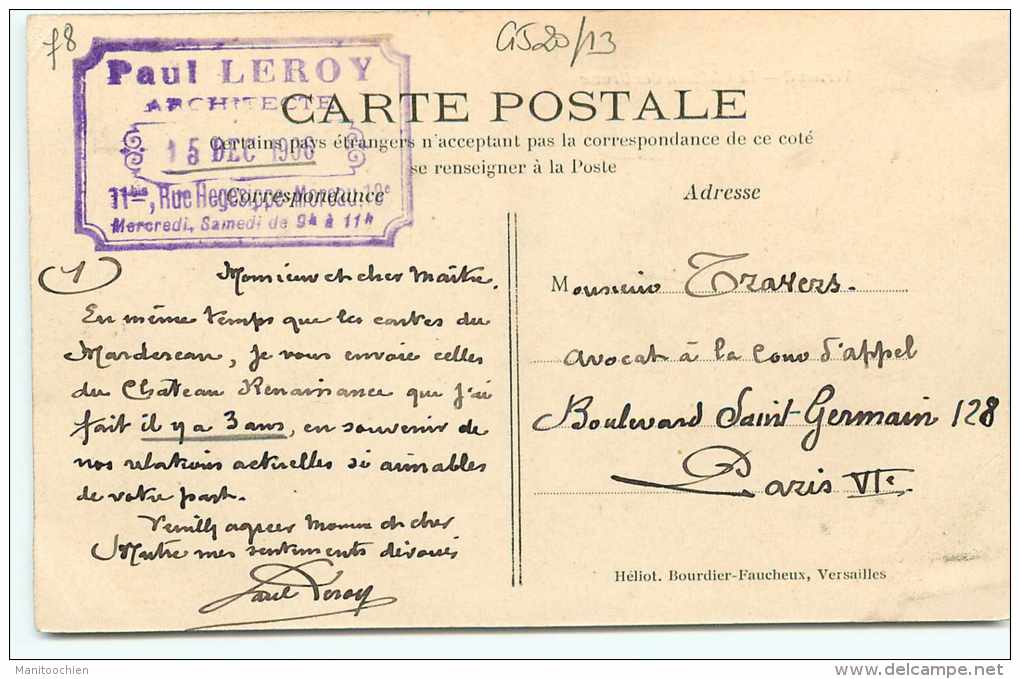 78
G520/13
Paul LEROY
ARCHITECTE
15 DEC 1906
11bis, Rue Hegesippe-Moreau. 18e
Mercredi, Samedi de 9h à 11h
CARTE POSTALE
Certains pays étrangers n'acceptant pas la correspondance de ce coté
se renseigner à la Poste
Correspondance
Adresse
1
Monsieur et cher Maître,
En même temps que les cartes du
Mardereau, je vous envoie celles
du Château Renaissance que j'ai
fait il y a 3 ans, en souvenir de
nos relations actuelles si aimables
de votre part.
Veuillz agréer Monsieur et cher
Maître mes sentiments dévoués
Paul Leroy
Monsieur Travers.
Avocat à la Cour d'appel
Boulevard Saint-Germain 128
Paris VIe.
Héliot. Bourdier-Faucheux, Versailles
Manitoochien
www.delcampe.net